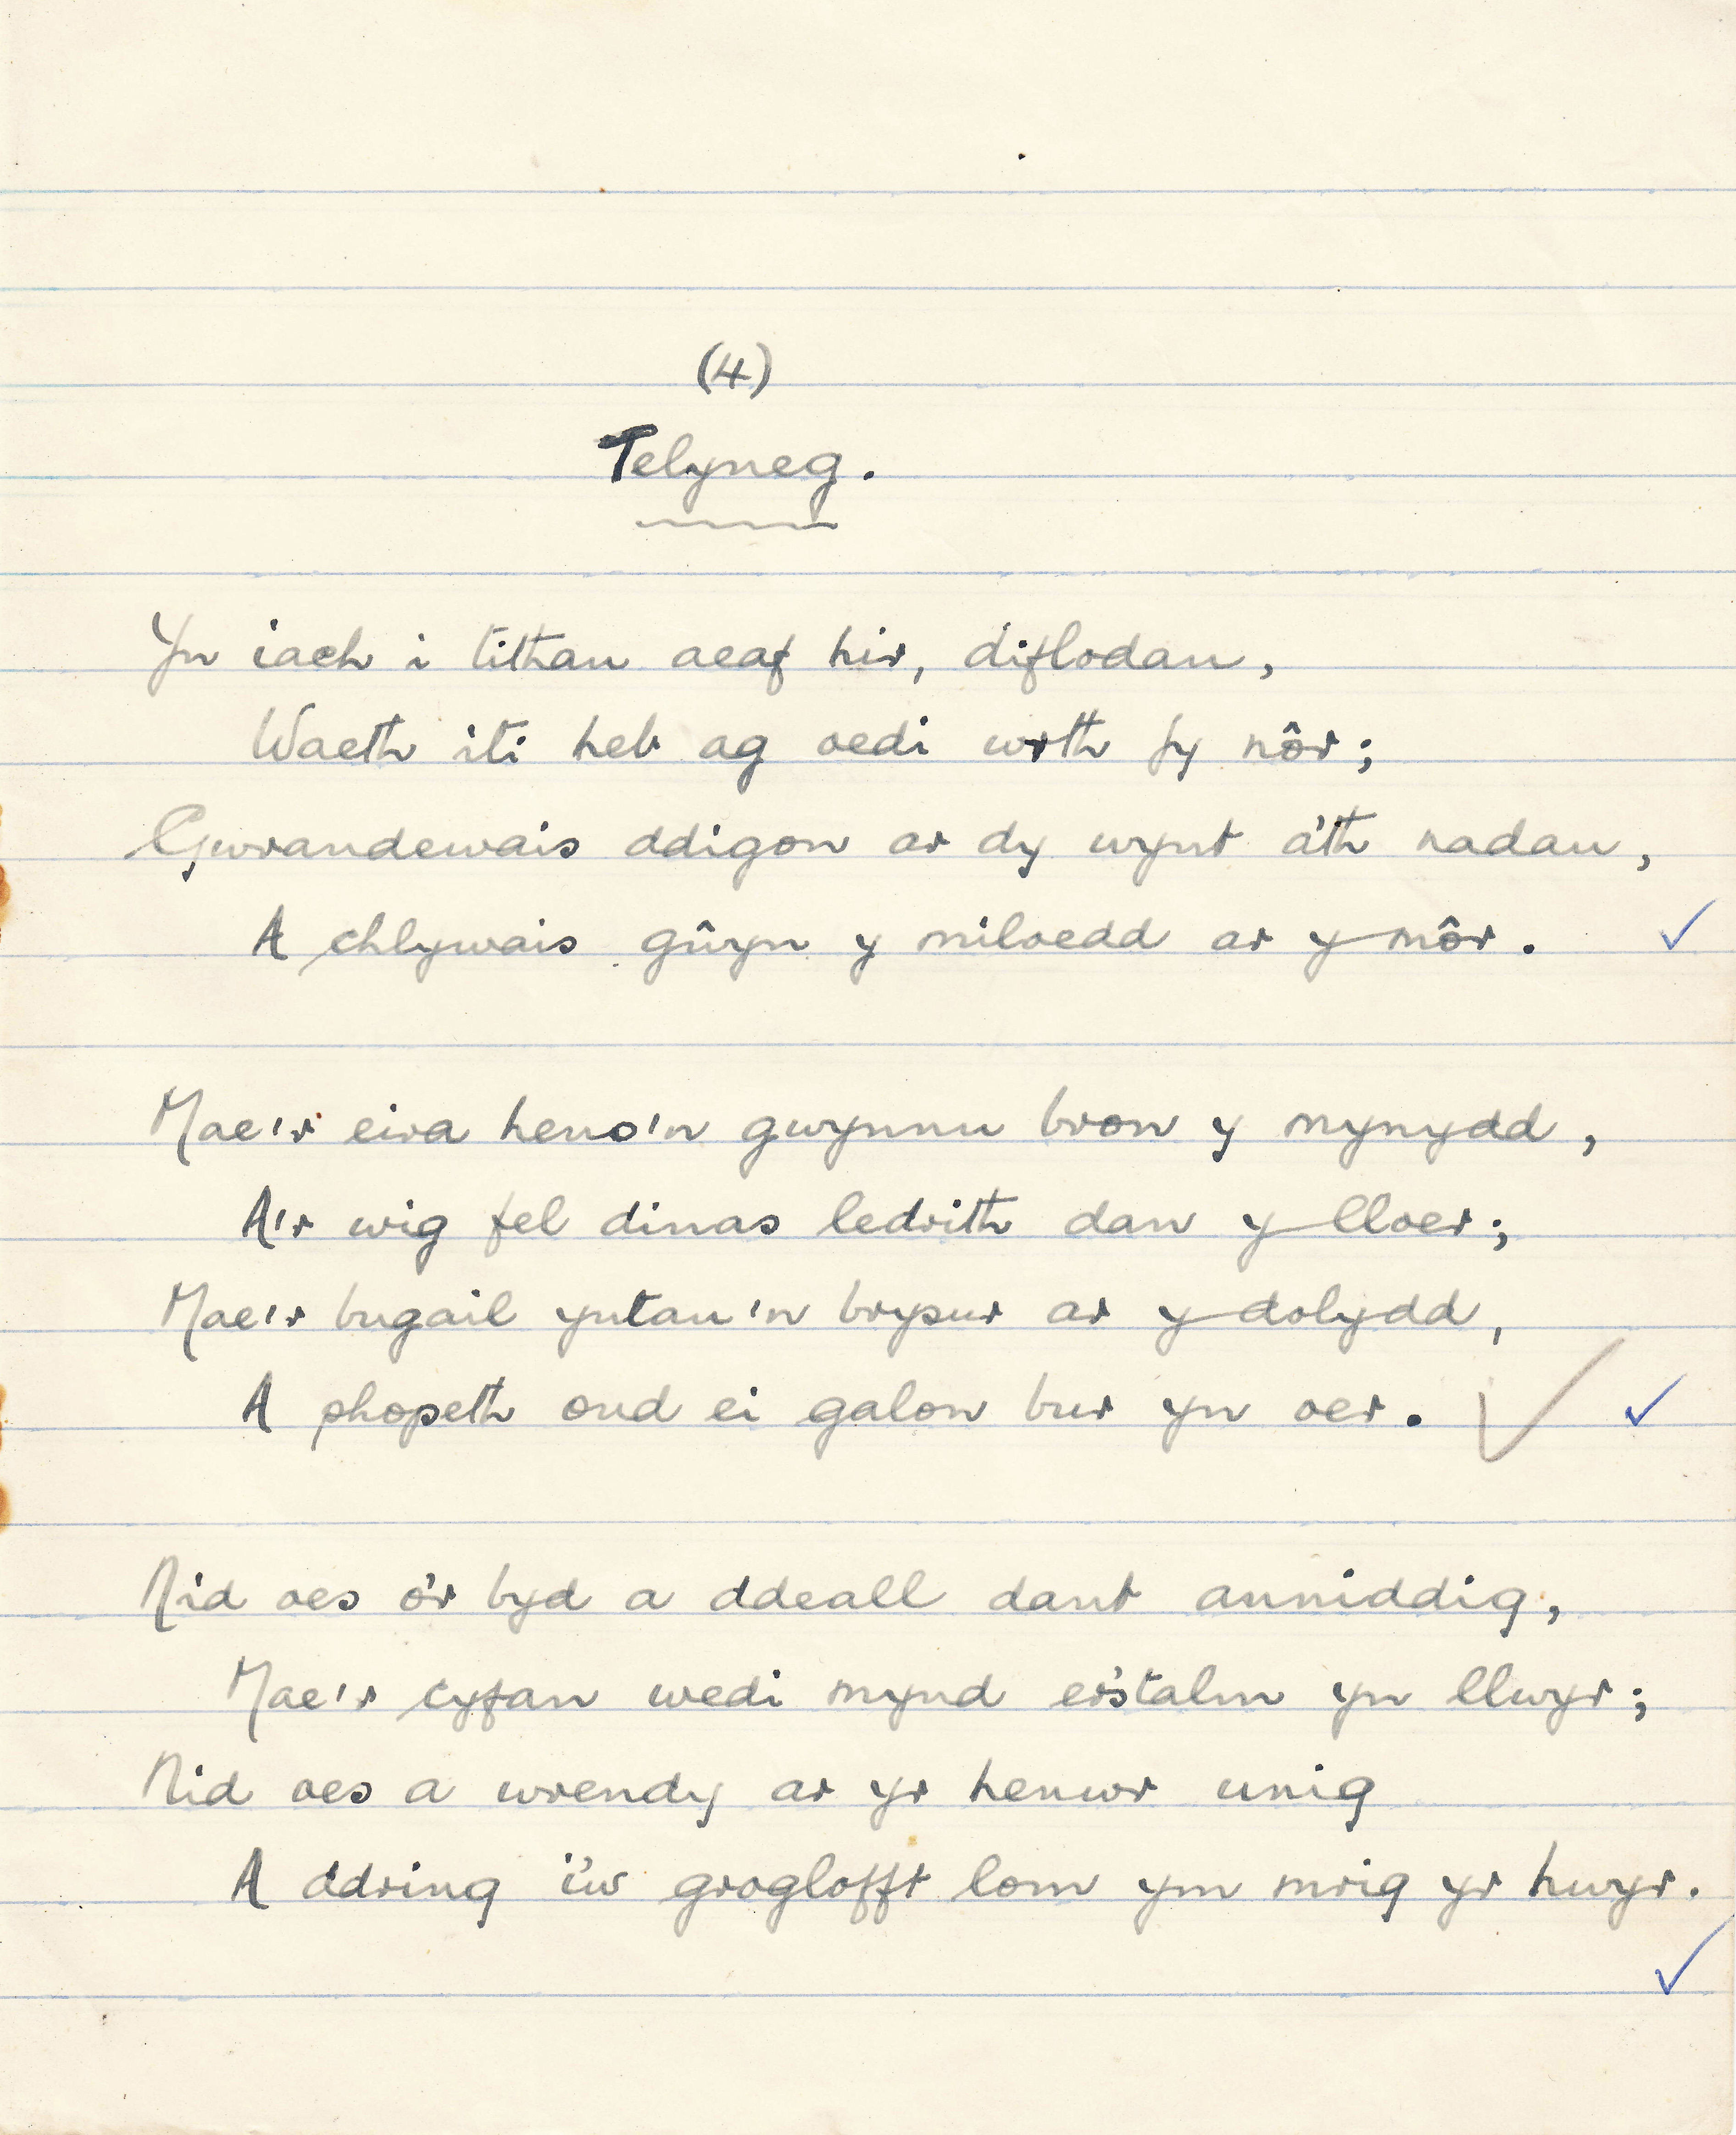 (4)
Telyneg.
Yn iach i tithau aeaf hir, diflodau,
Waeth iti heb ag oedi wrth fy nôr;
Gwrandewais ddigon ar dy wynt a'th nadau,
A chlywais gŵyn y miloedd ar y môr.
Mae'r eira heno'n gwynnu bron y mynydd,
A'r wig fel dinas ledrith dan y lloer;
Mae'r bugail yntau'n brysur ar y dolydd,
A phopeth ond ei galon bur yn oer.
Nid oes o'r byd a ddeall dant anniddig,
Mae'r cyfan wedi mynd ers'talm yn llwyr;
Nid oes a wrendy ar yr henwr unig
A ddring i'w groglofft lom ym mrig yr hwyr.